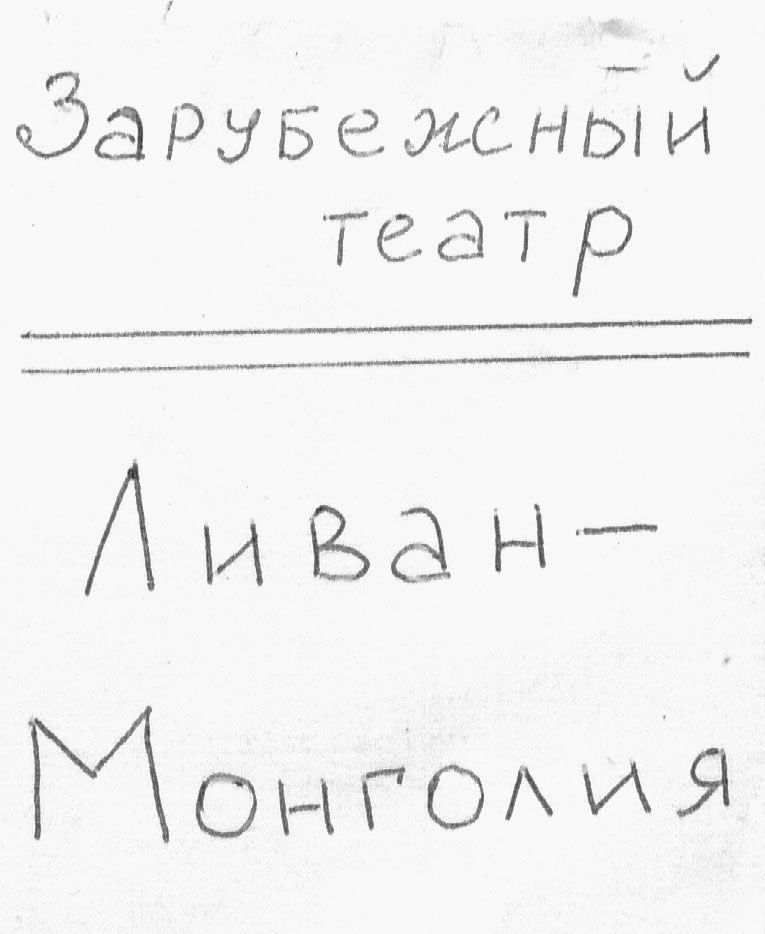 Зарубежный
театр
Ливан—
Монголия